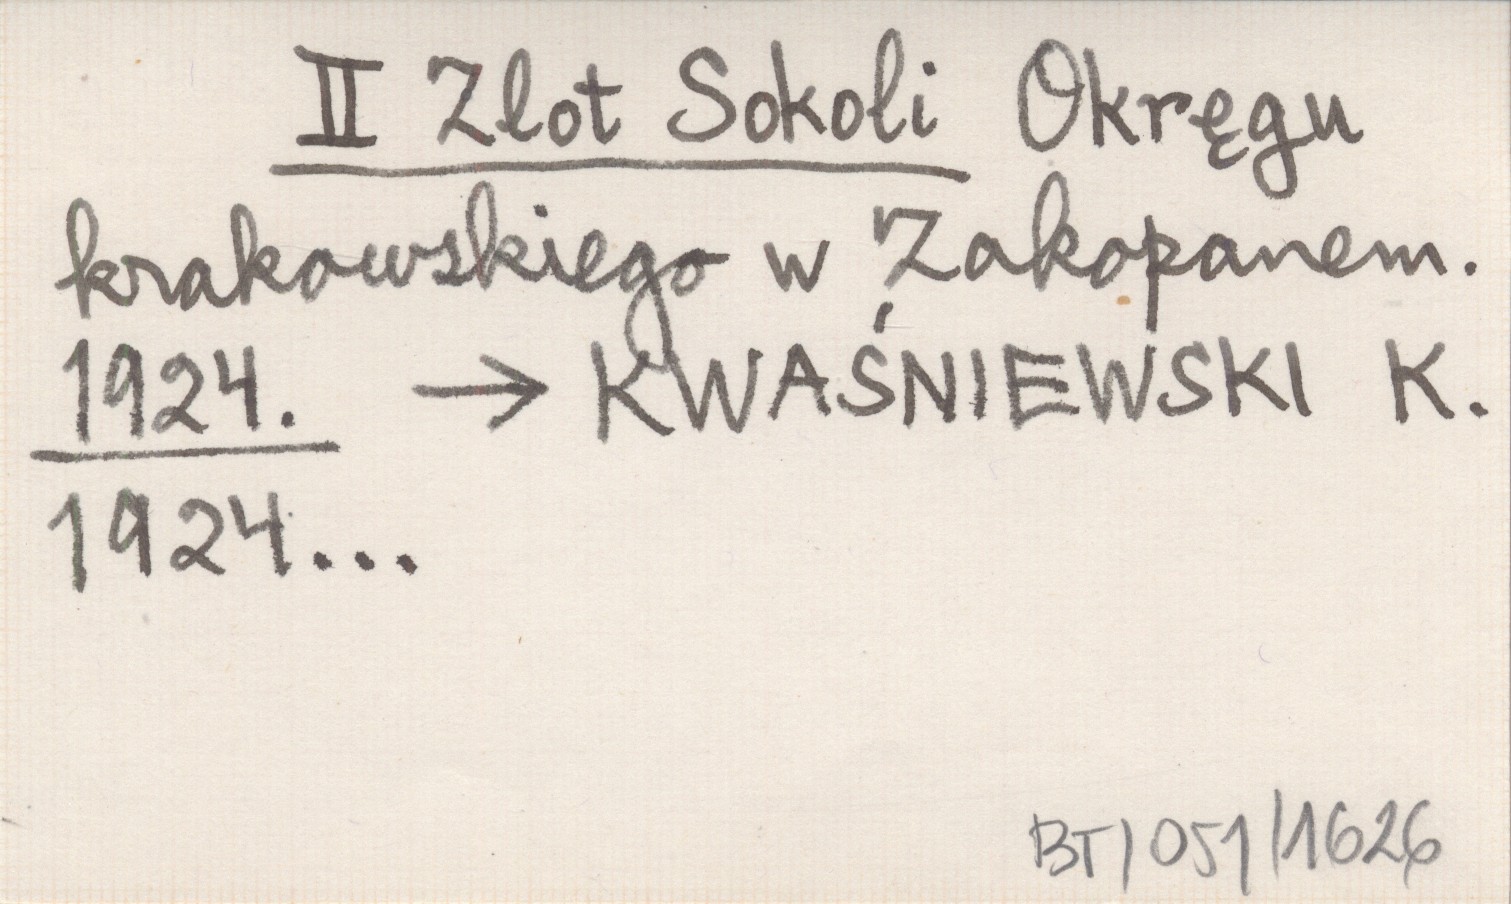 II Zlot Sokoli Okręgu
krakowskiego w Zakopanem.
1924. → KWAŚNIEWSKI K.
1924...
BT/051/1626